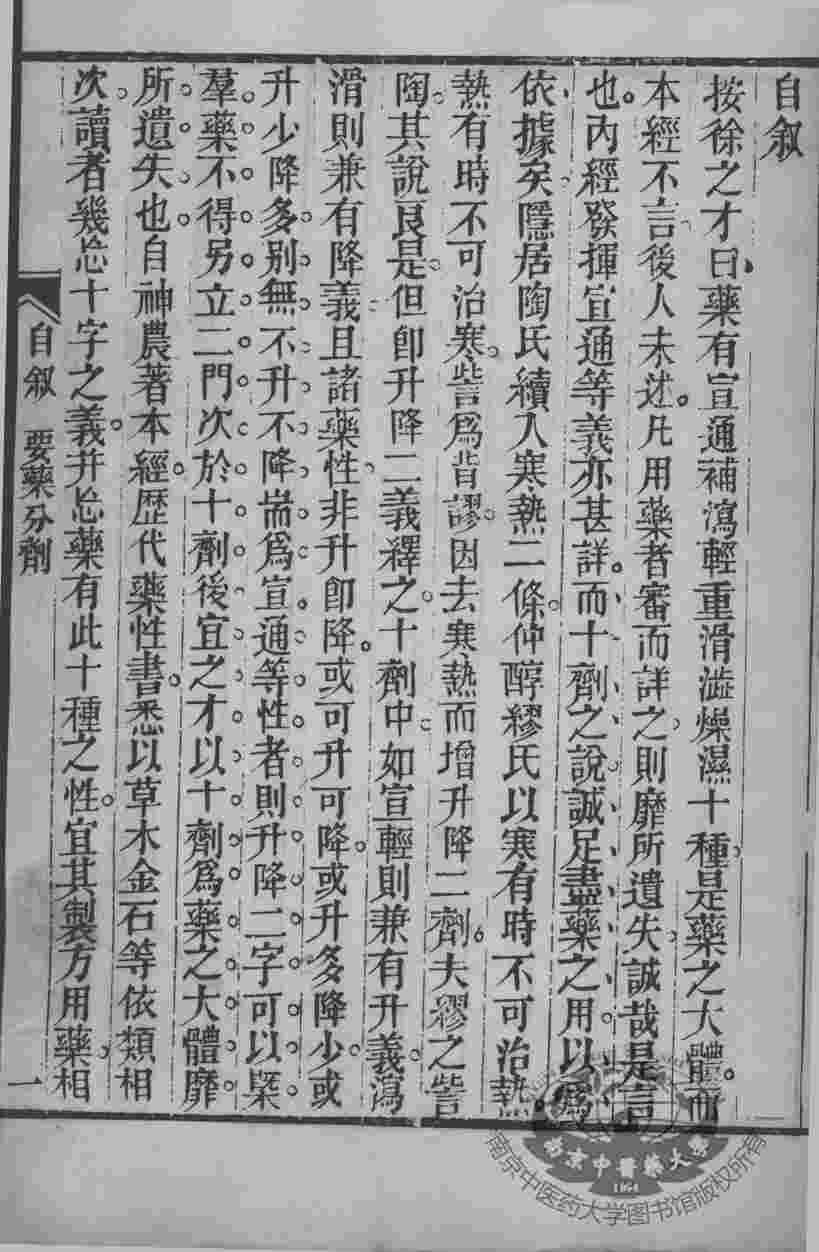 自叙
按徐之才曰藥有宣通補瀉輕重滑澁燥濕十種是藥之大體而
本經不言後人未述凡用藥者審而詳之則靡所遺失誠哉是言
也內經發揮宣通等義亦甚詳而十劑之說誠足盡藥之用以爲
依據矣隱居陶氏續入寒熱二條仲醇繆氏以寒有時不可治熱
熱有時不可治寒訾爲背謬因去寒熱而增升降二劑夫繆之訾
陶其說良是但卽升降二義釋之十劑中如宣輕則兼有升義瀉
滑則兼有降義且諸藥性非升卽降或可升可降或升多降少或
升少降多別無不升不降耑爲宣通等性者則升降二字可以槩
羣藥不得另立二門次於十劑後宜之才以十劑爲藥之大體靡
所遺失也自神農著本經歷代藥性書悉以草木金石等依類相
次讀者幾忘十字之義并忘藥有此十種之性宜其製方用藥相
自叙 要藥分劑
一
南京中醫藥大學
1954
南京中医药大学图书馆版权所有